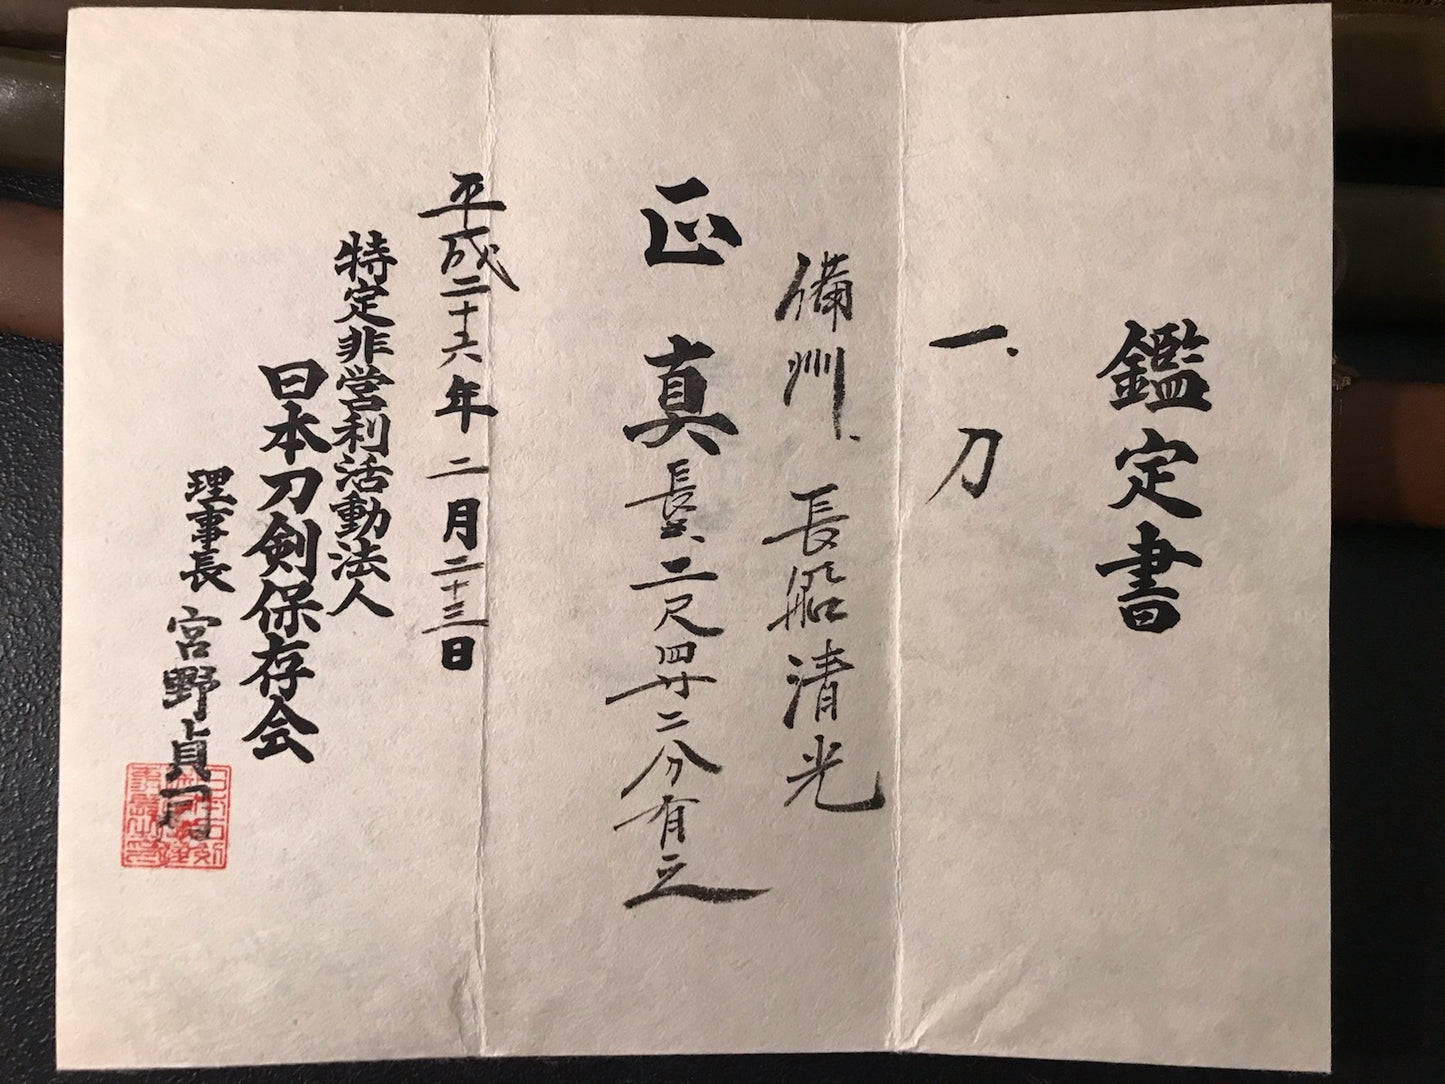 鑑定書
一、刀
備州、長船清光
正真
長サ二尺四寸二分有之
平成二十六年二月二十三日
特定非営利活動法人
日本刀剣保存会
理事長 宮野貞司